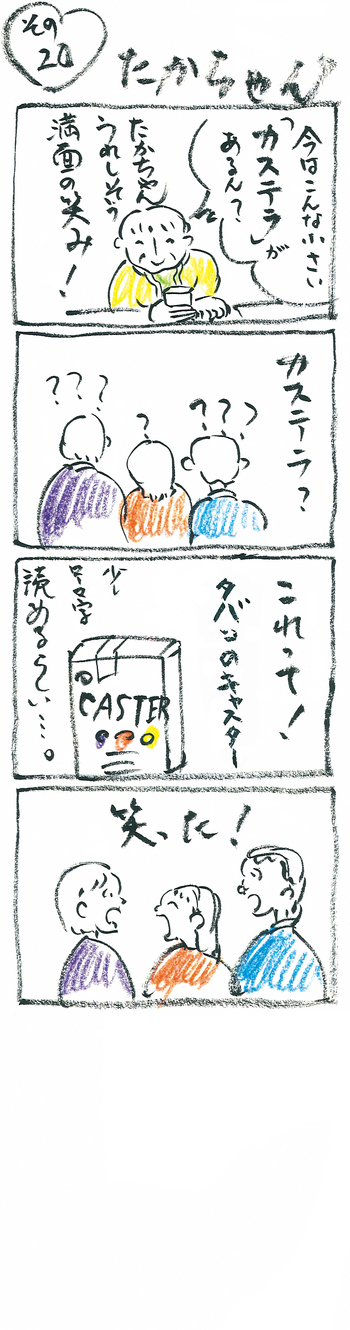 その
20
たかちゃん
今はこんな小さい
「カステラ」が
あるん?
たかちゃん
うれしそう
満面の笑み!
カステーラ?
???
?
???
これって!
タバコのキャスター
少し
ローマ字
読めるらしい…。
CASTER
笑った!